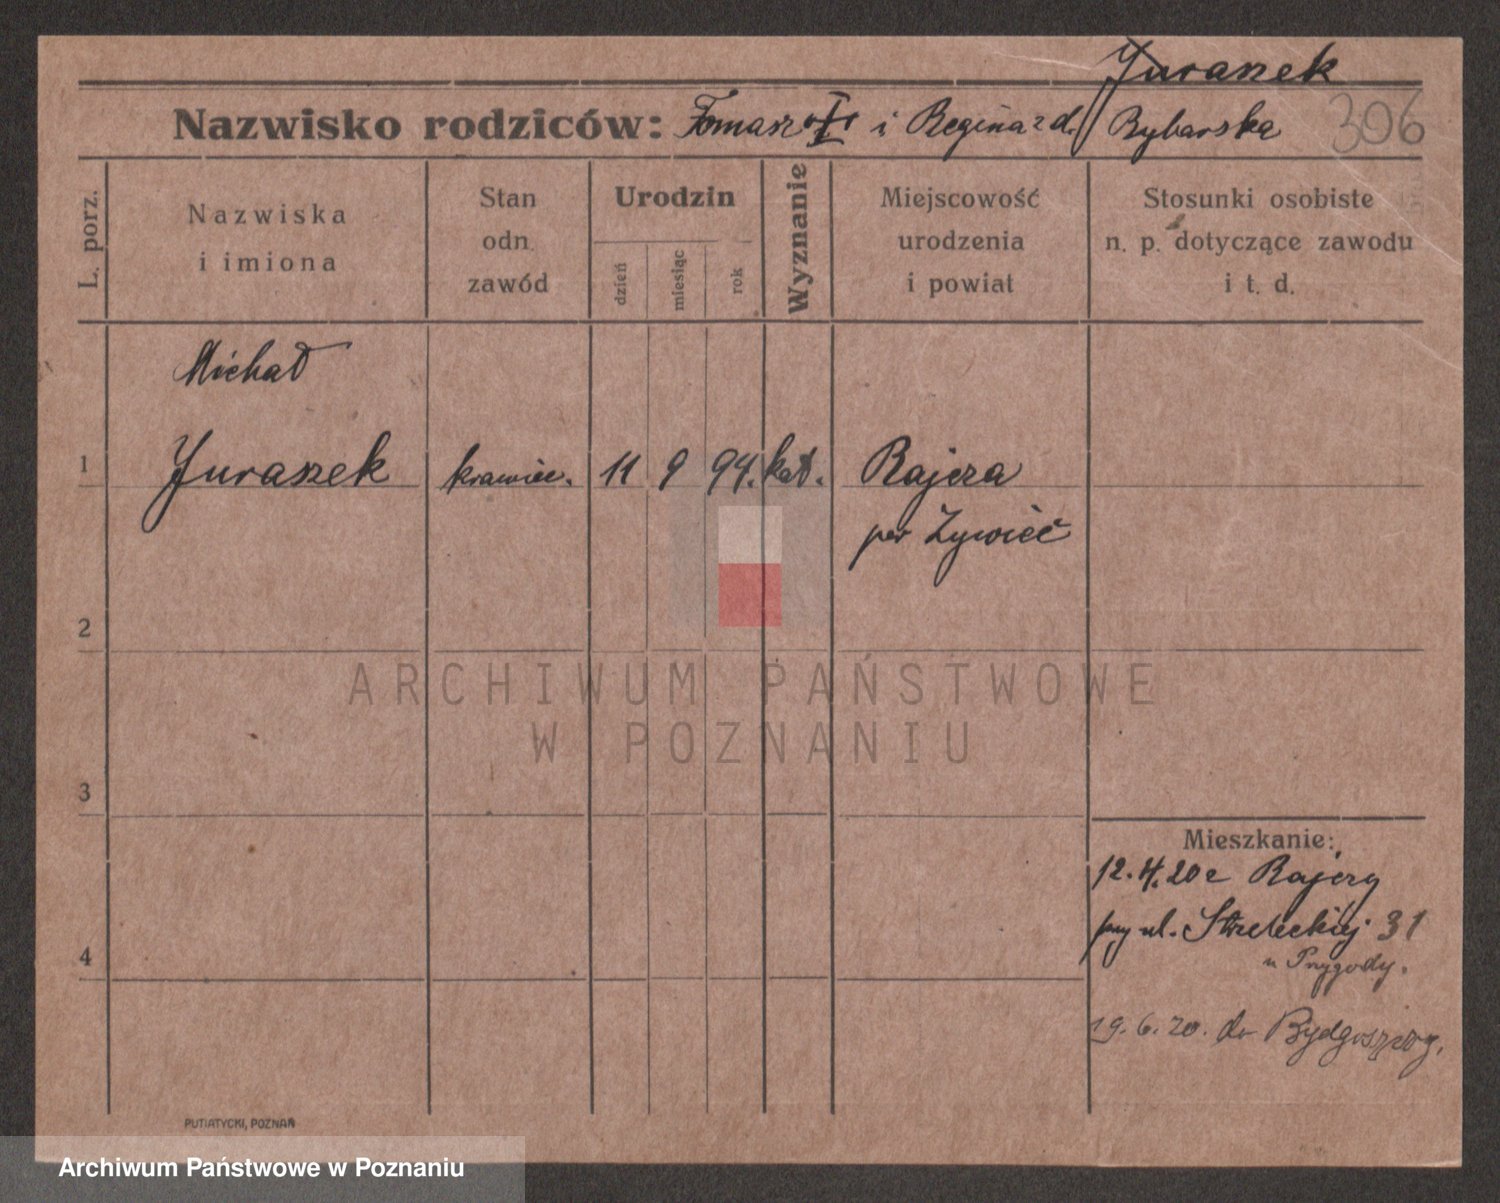 Juraszek
Nazwisko rodziców: Tomasz i Regina z d. Rybarska 306
L. porz.
Nazwiska
i imiona
Stan
odn.
zawód
Urodzin
dzień
miesiąc
rok
Wyznanie
Miejscowość
urodzenia
i powiat
Stosunki osobiste
n. p. dotyczące zawodu
i t. d.
Michał
1 Juraszek krawiec. 11 9 94. kat. Rajcza
pow Żywiec
2
ARCHIWUM PAŃSTWOWE
W POZNANIU
3
Mieszkanie:
12.4.20 z Rajczy
przy ul. Strzeleckiej 31
u Przygody.
4
19.6.20. do Bydgoszczy.
PUTIATYCKI, POZNAŃ
Archiwum Państwowe w Poznaniu